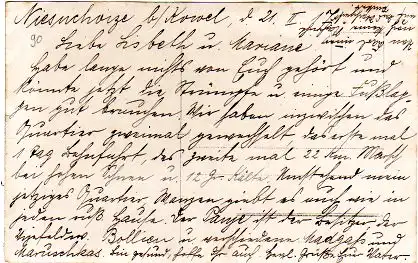 Niesuchoize b/Kowel, d 21. II.
90
Liebe Lisbeth u. Mariane
Habe lange nichts von Euch gehört und
könnte jetzt die Strümpfe u. einige Fußlap
pen gut brauchen. Wir haben inzwischen das
Quartier zweimal gewechselt das erste mal
1 Tag Bahnfahrt, des zweite mal 22 km Marsch
bei hohen Schnee u 12 Gr Kälte. Umstehend mein
jetziges Quartier, Wanzen giebt es auch wie in
jeden ruß Hause. Der Panje ist der Besitzer der
u verschiedene und
Maruschkas. Bin gesund, hoffe Ihr auch herzl. Grüße Eur Vater